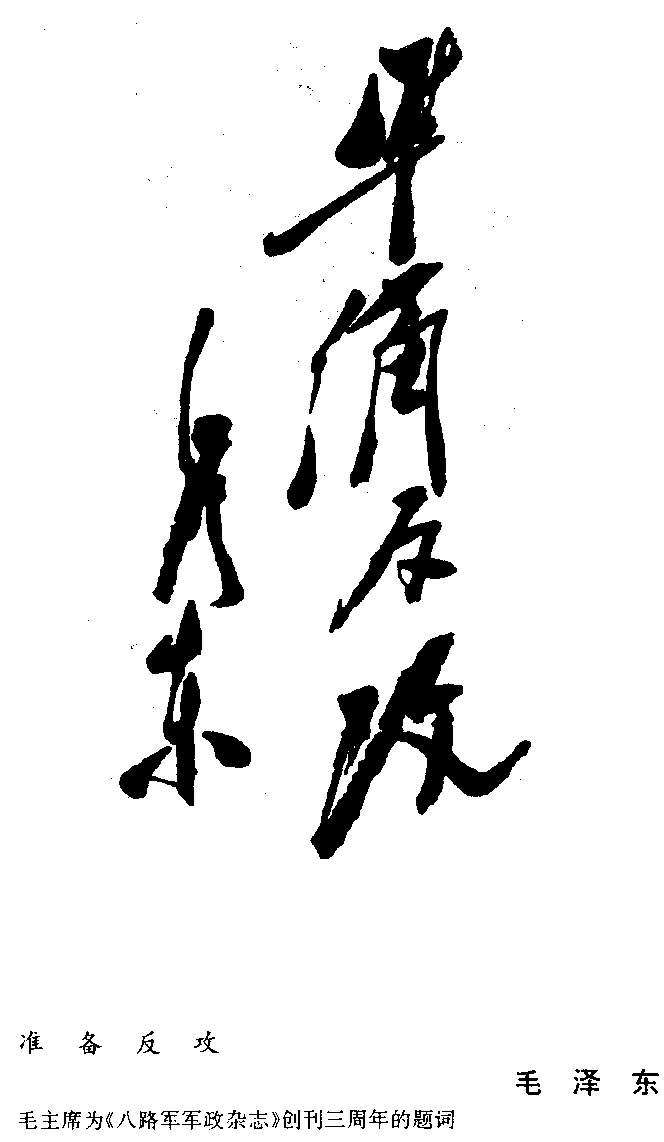 准备反攻
毛泽东
准备反攻
毛泽东
毛主席为《八路军军政杂志》创刊三周年的题词